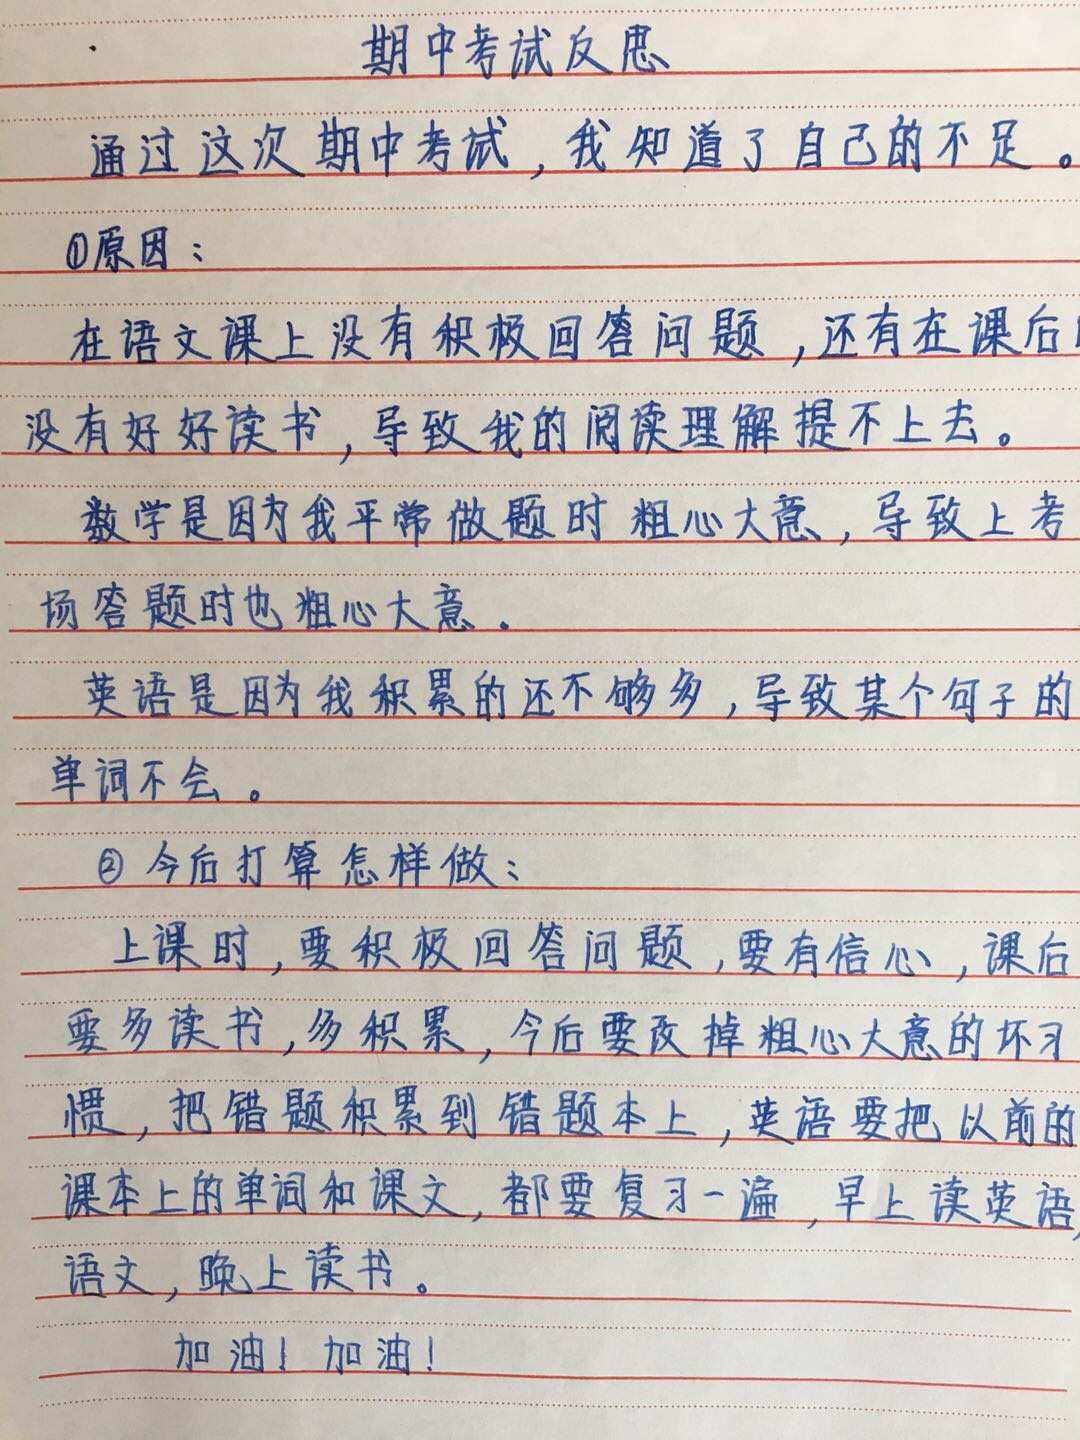 期中考试反思
通过这次期中考试，我知道了自己的不足。
①原因：
在语文课上没有积极回答问题，还有在课后
没有好好读书，导致我的阅读理解提不上去。
数学是因为我平常做题时粗心大意，导致上考
场答题时也粗心大意．
英语是因为我积累的还不够多，导致某个句子的
单词不会。
②今后打算怎样做：
上课时，要积极回答问题，要有信心，课后
要多读书，多积累，今后要改掉粗心大意的坏习
惯，把错题积累到错题本上，英语要把以前的
课本上的单词和课文，都要复习一遍，早上读英语，
语文，晚上读书。
加油！加油！